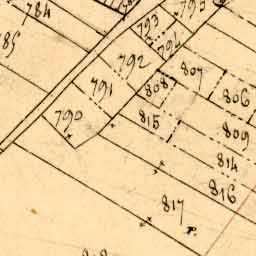 784
785
793
795
794
792
807
791
808
806
790
815
809
814
816
817
P.